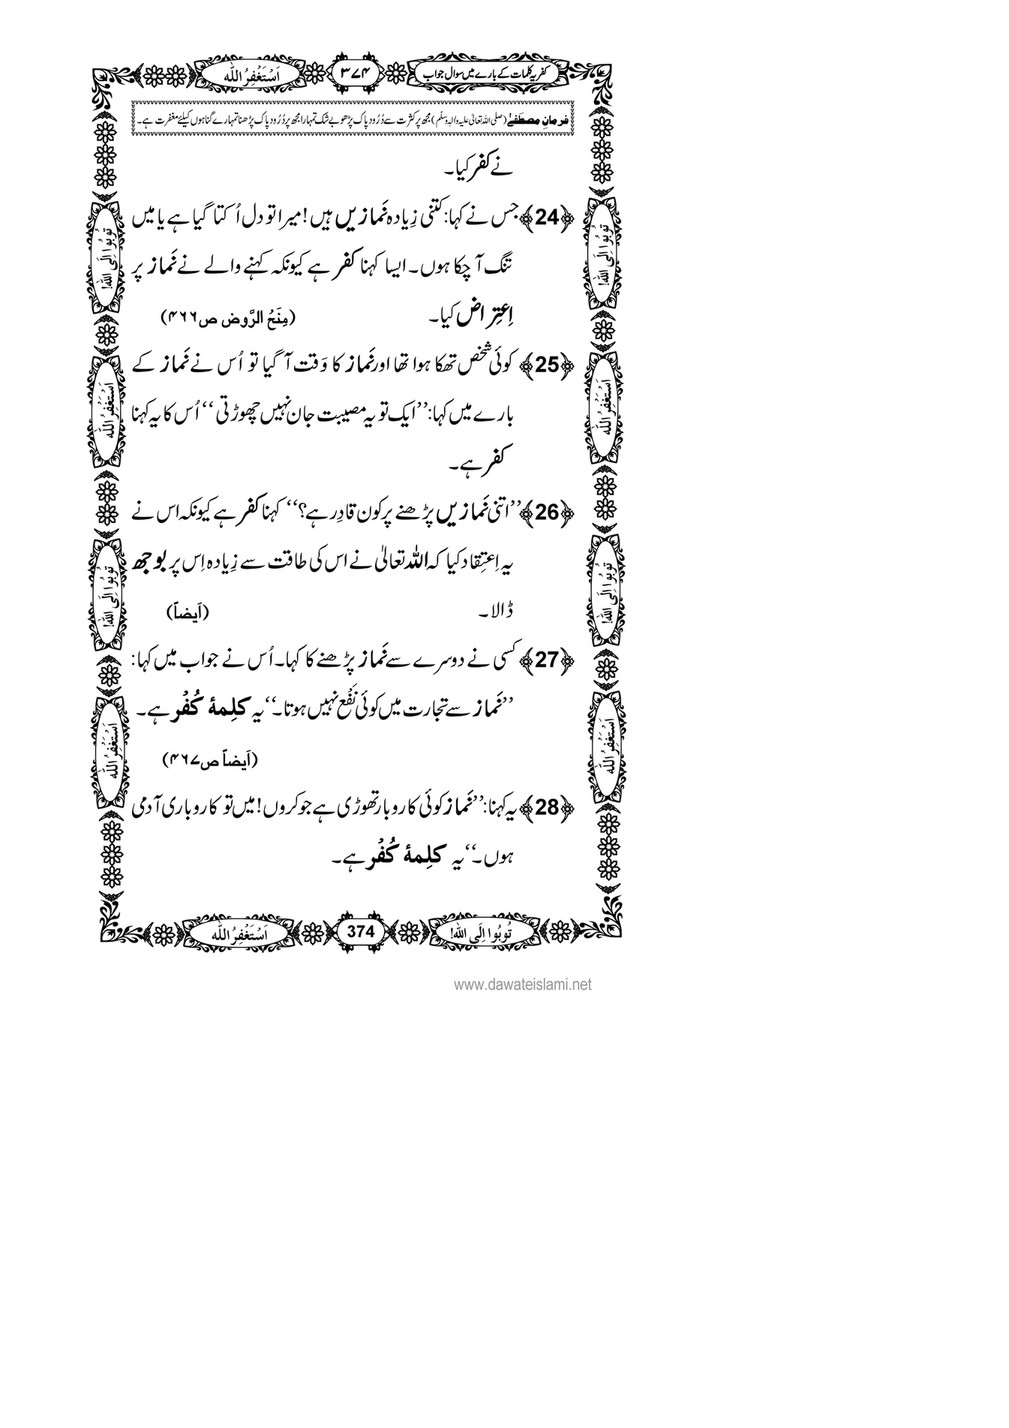 کفریہ کلمات کے بارے میں سوال جواب
۳۷۴
اَسْتَغْفِرُ اللّٰه
فرمانِ مصطَفٰے (صلی اللہ تعالیٰ علیہ والہٖ وسلّم) مجھ پر کثرت سے دُرُود پاک پڑھو بے شک تمہارا مجھ پر دُرُود پاک پڑھنا تمہارے گناہوں کیلئے مغفرت ہے۔
نے کفر کیا۔
﴿24﴾ جس نے کہا: کتنی زِیادہ نَمازیں ہیں! میرا تو دل اُکتا گیا ہے یا میں
تنگ آ چکا ہوں۔ ایسا کہنا کفر ہے کیونکہ کہنے والے نے نَماز پر
اِعتِراض کیا۔ (مِنَحُ الرَّوض ص۴۶۶)
﴿25﴾ کوئی شخص تھکا ہوا تھا اور نَماز کا وَقت آ گیا تو اُس نے نَماز کے
بارے میں کہا: ’’ایک تو یہ مصیبت جان نہیں چھوڑتی‘‘ اُس کا یہ کہنا
کفر ہے۔
﴿26﴾ ’’اتنی نَمازیں پڑھنے پر کون قادِر ہے؟‘‘ کہنا کفر ہے کیونکہ اس نے
یہ اِعتِقاد کیا کہ اللہ تعالیٰ نے اس کی طاقت سے زِیادہ اِس پر بوجھ
ڈالا۔ (اَیضاً)
﴿27﴾ کسی نے دوسرے سے نَماز پڑھنے کا کہا۔ اُس نے جواب میں کہا:
’’نَماز سے تجارت میں کوئی نَفْع نہیں ہوتا۔‘‘ یہ کلِمۂ کُفْر ہے۔
(اَیضاً ص۴۶۷)
﴿28﴾ یہ کہنا: ’’نَماز کوئی کاروبار تھوڑی ہے جو کروں! میں تو کاروباری آدمی
ہوں۔‘‘ یہ کلِمۂ کُفْر ہے۔
تُوبُوا اِلَی اللّٰه!
اَسْتَغْفِرُ اللّٰه
تُوبُوا اِلَی اللّٰه!
اَسْتَغْفِرُ اللّٰه
تُوبُوا اِلَی اللّٰه!
اَسْتَغْفِرُ اللّٰه
تُوبُوا اِلَی اللّٰه!
اَسْتَغْفِرُ اللّٰه
تُوبُوا اِلَی اللّٰه!
374
اَسْتَغْفِرُ اللّٰه
www.dawateislami.net